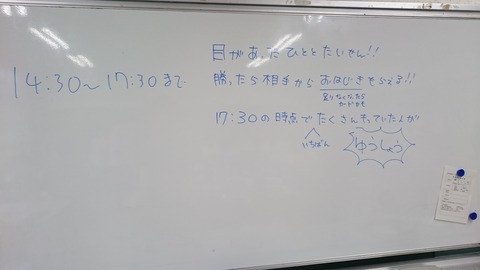 14:30～17:30まで
目があったひととたいせん!!
勝ったら相手からおはじきもらえる!!
足りなくなったら
カードかも
17:30の時点でたくさんもっていた人が
いちばん
ゆうしょう